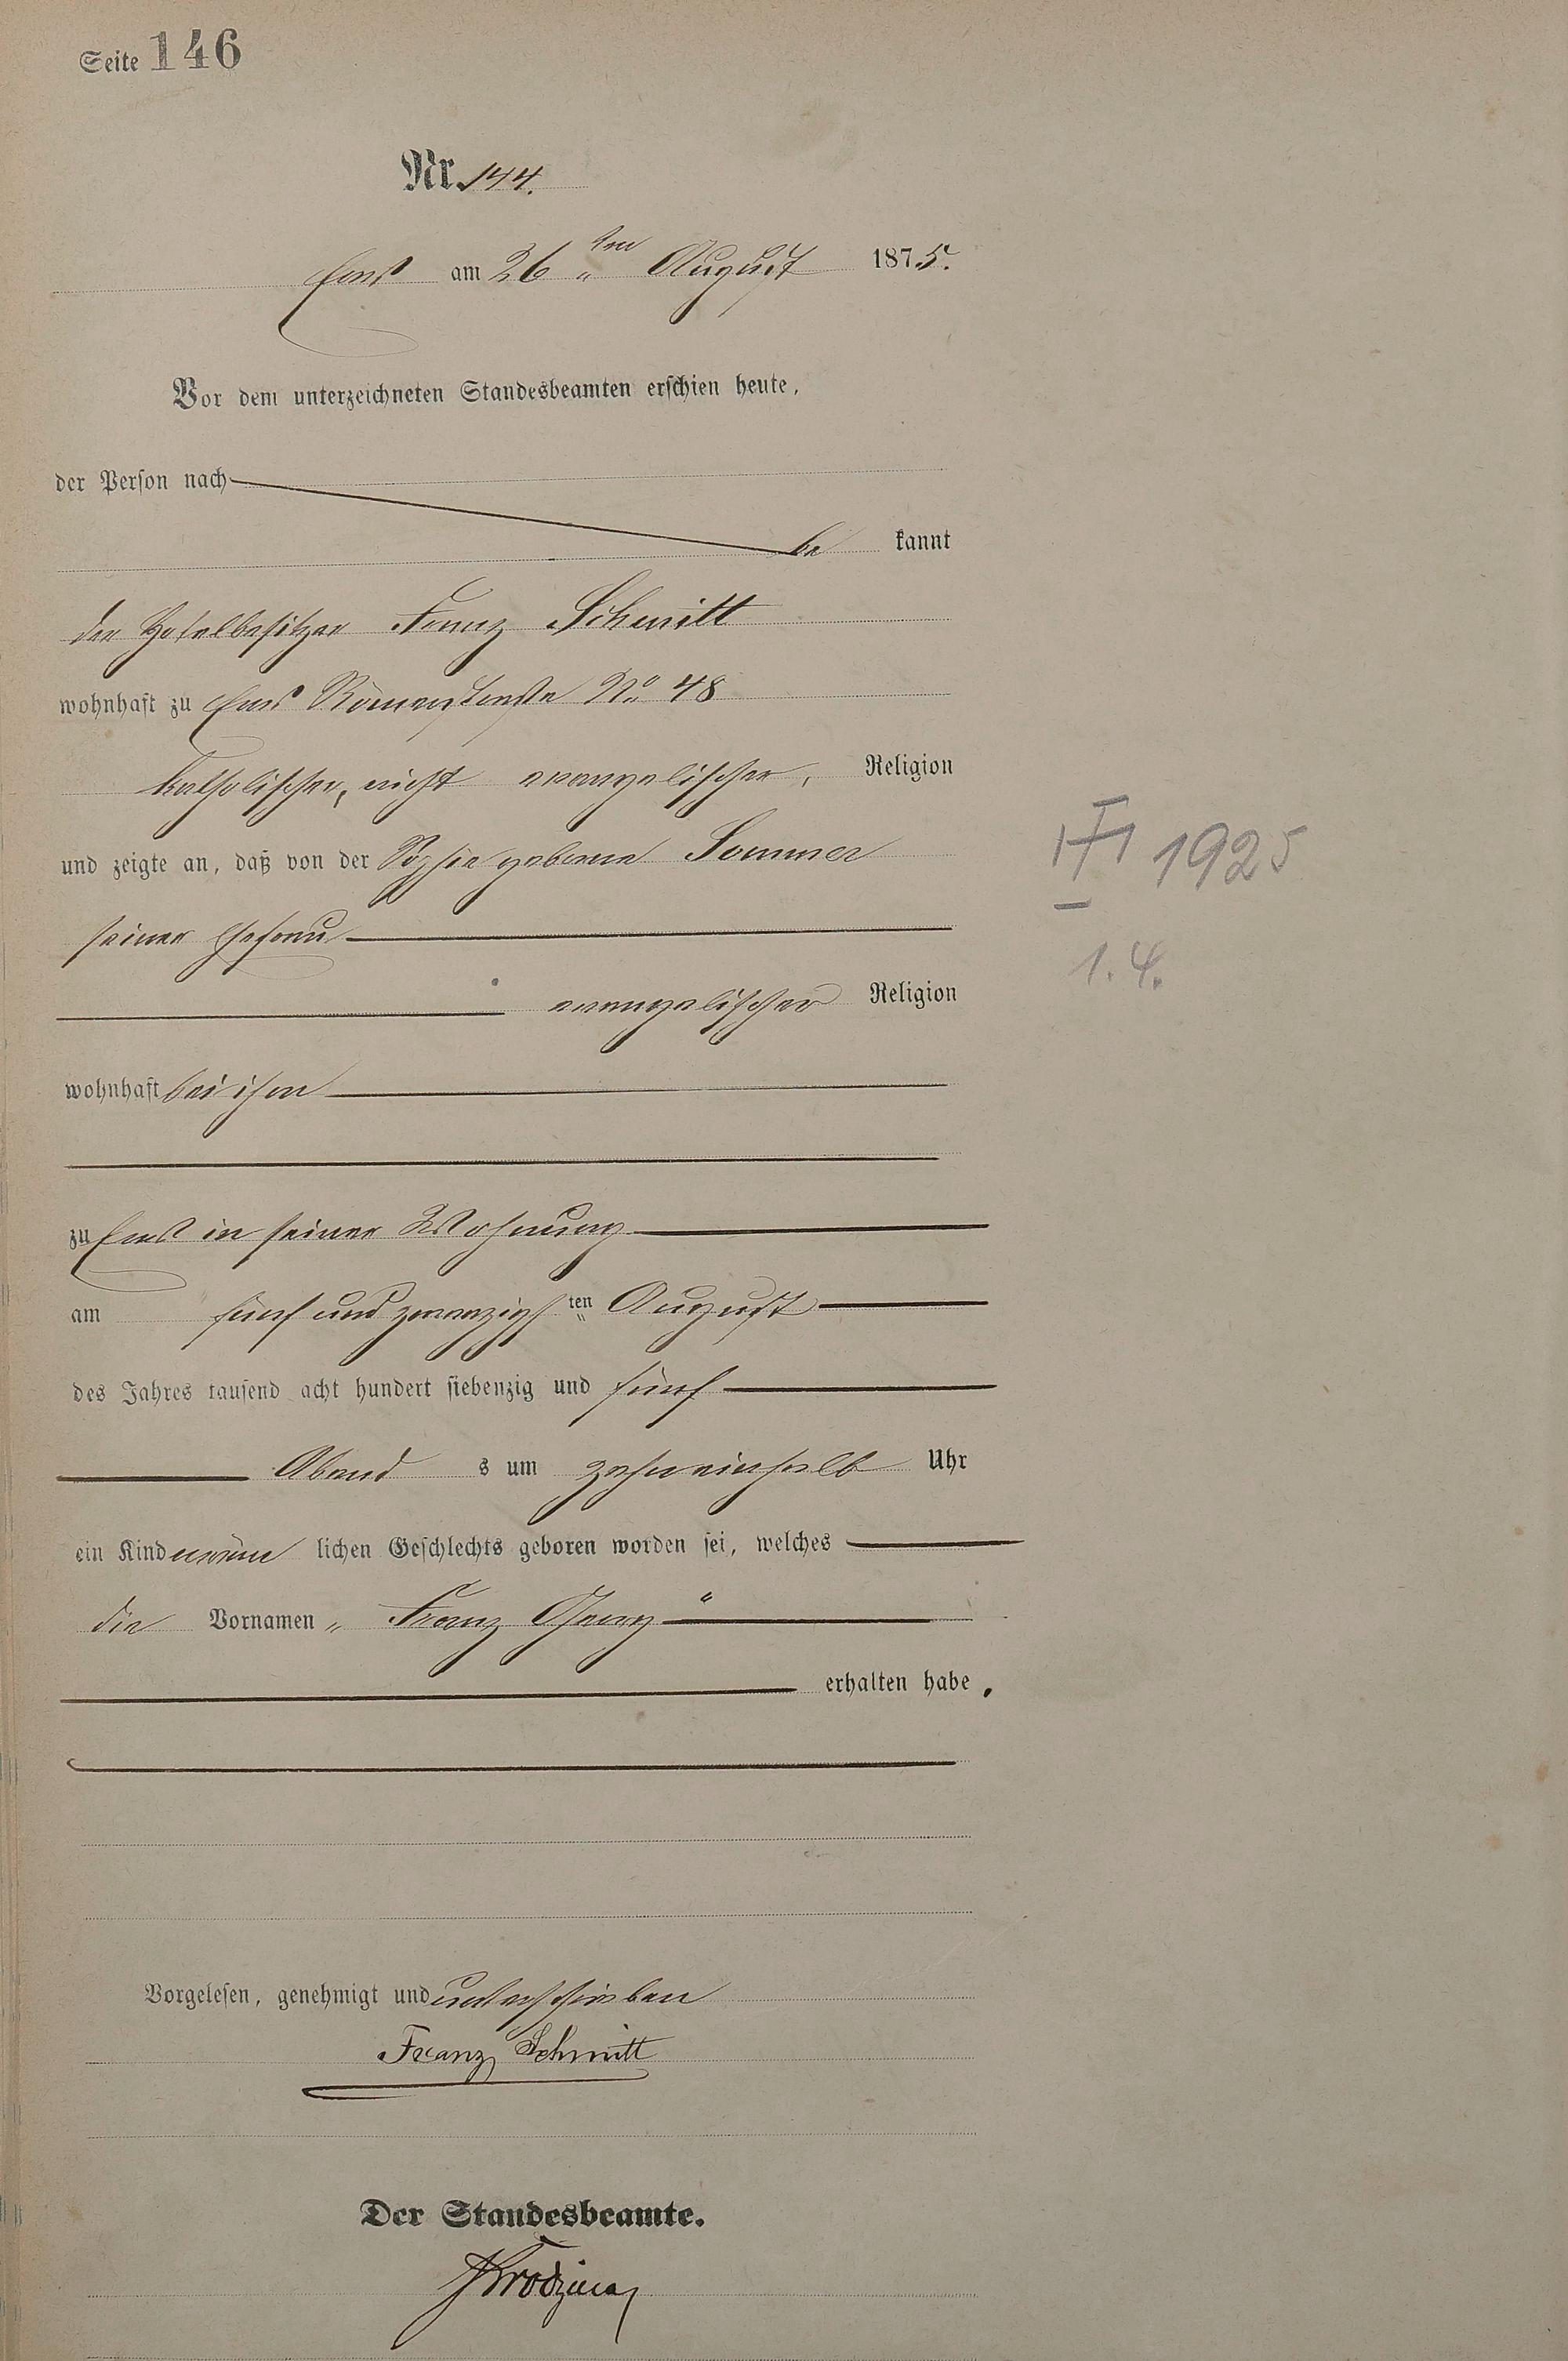 Seite 146
Nr. 144.
Ems am 26ten August 1875.
Vor dem unterzeichneten Standesbeamten erschien heute,
der Person nach
be kannt
der Hotelbesitzer Franz Schmitt
wohnhaft zu Ems Römerstraße No 48
katholischer, nicht evangelischer, Religion
und zeigte an, daß von der Sophie geborene Sommer
seiner Ehefrau
evangelischer Religion
wohnhaft bei ihm
zu Ems in seiner Wohnung
am fünf und zwanzigsten August
des Jahres tausend acht hundert siebenzig und fünf
Abend s um zehneinhalb Uhr
ein Kind männ lichen Geschlechts geboren worden sei, welches
die Vornamen „Franz Georg“
erhalten habe.
Vorgelesen, genehmigt und unterschrieben
Franz Schmitt
Der Standesbeamte.
1925
1. 4.